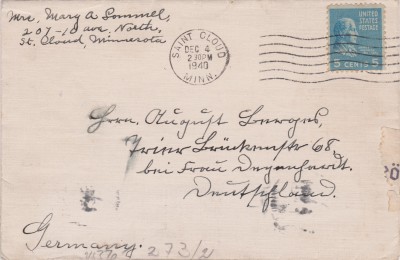 Mrs. Mary A Sommel,
207-10 ave. North,
St. Cloud, Minnesota
SAINT CLOUD
DEC 4
2 30PM
1940
MINN.
UNITED
STATES
POSTAGE
5 CENTS 5
Herrn, August Berges,
Trier Brückenstr 68
bei Frau Degenhardt.
Deutschland.
Germany.
273/2